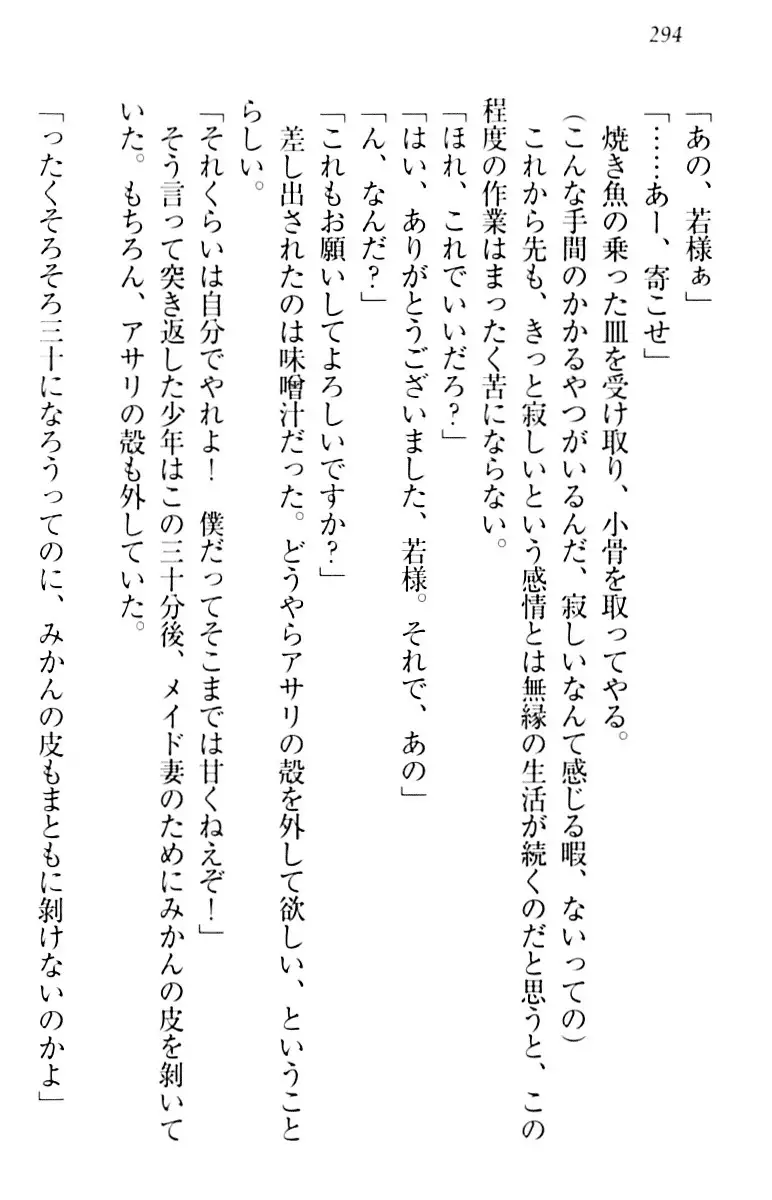 294
「あの、若様ぁ」
「……あー、寄こせ」
焼き魚の乗った皿を受け取り、小骨を取ってやる。
(こんな手間のかかるやつがいるんだ、寂しいなんて感じる暇、ないっての)
これから先も、きっと寂しいという感情とは無縁の生活が続くのだと思うと、この
程度の作業はまったく苦にならない。
「ほれ、これでいいだろ?」
「はい、ありがとうございました、若様。それで、あの」
「ん、なんだ?」
「これもお願いしてよろしいですか?」
差し出されたのは味噌汁だった。どうやらアサリの殻を外して欲しい、ということ
らしい。
「それくらいは自分でやれよ! 僕だってそこまでは甘くねえぞ!」
そう言って突き返した少年はこの三十分後、メイド妻のためにみかんの皮を剝いて
いた。もちろん、アサリの殻も外していた。
「ったくそろそろ三十になろうってのに、みかんの皮もまともに剝けないのかよ」